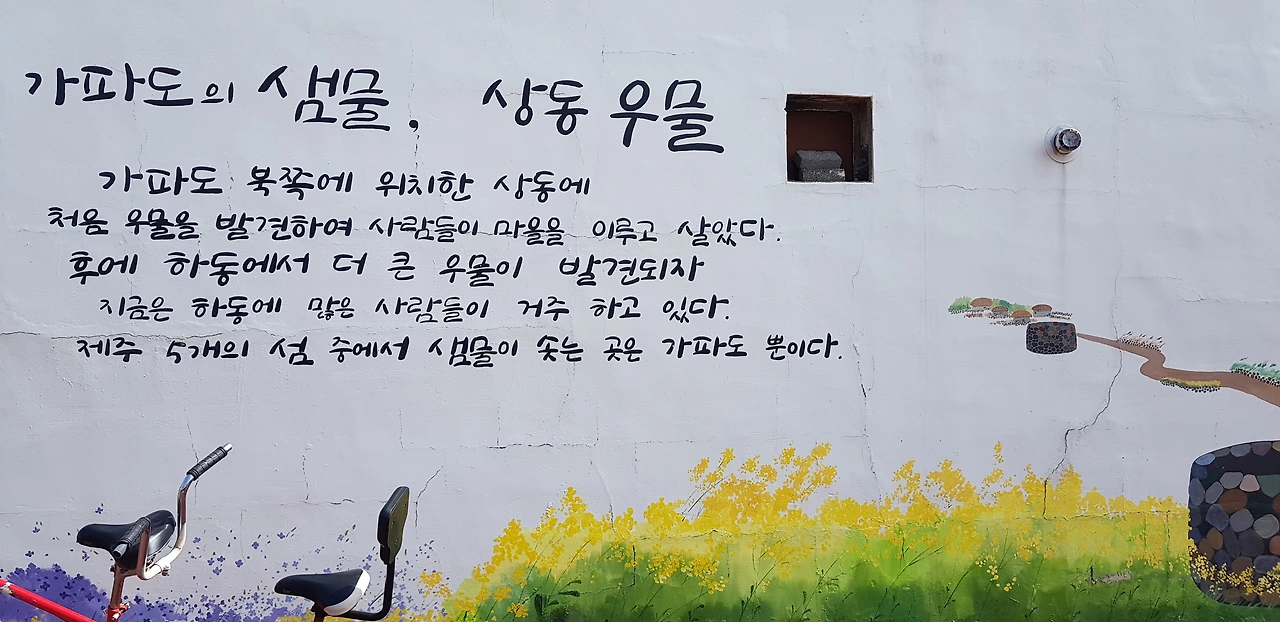 가파도의 샘물, 상동 우물
가파도 북쪽에 위치한 상동에
처음 우물을 발견하여 사람들이 마을을 이루고 살았다.
후에 하동에서 더 큰 우물이 발견되자
지금은 하동에 많은 사람들이 거주 하고 있다.
제주 5개의 섬 중에서 샘물이 솟는 곳은 가파도 뿐이다.